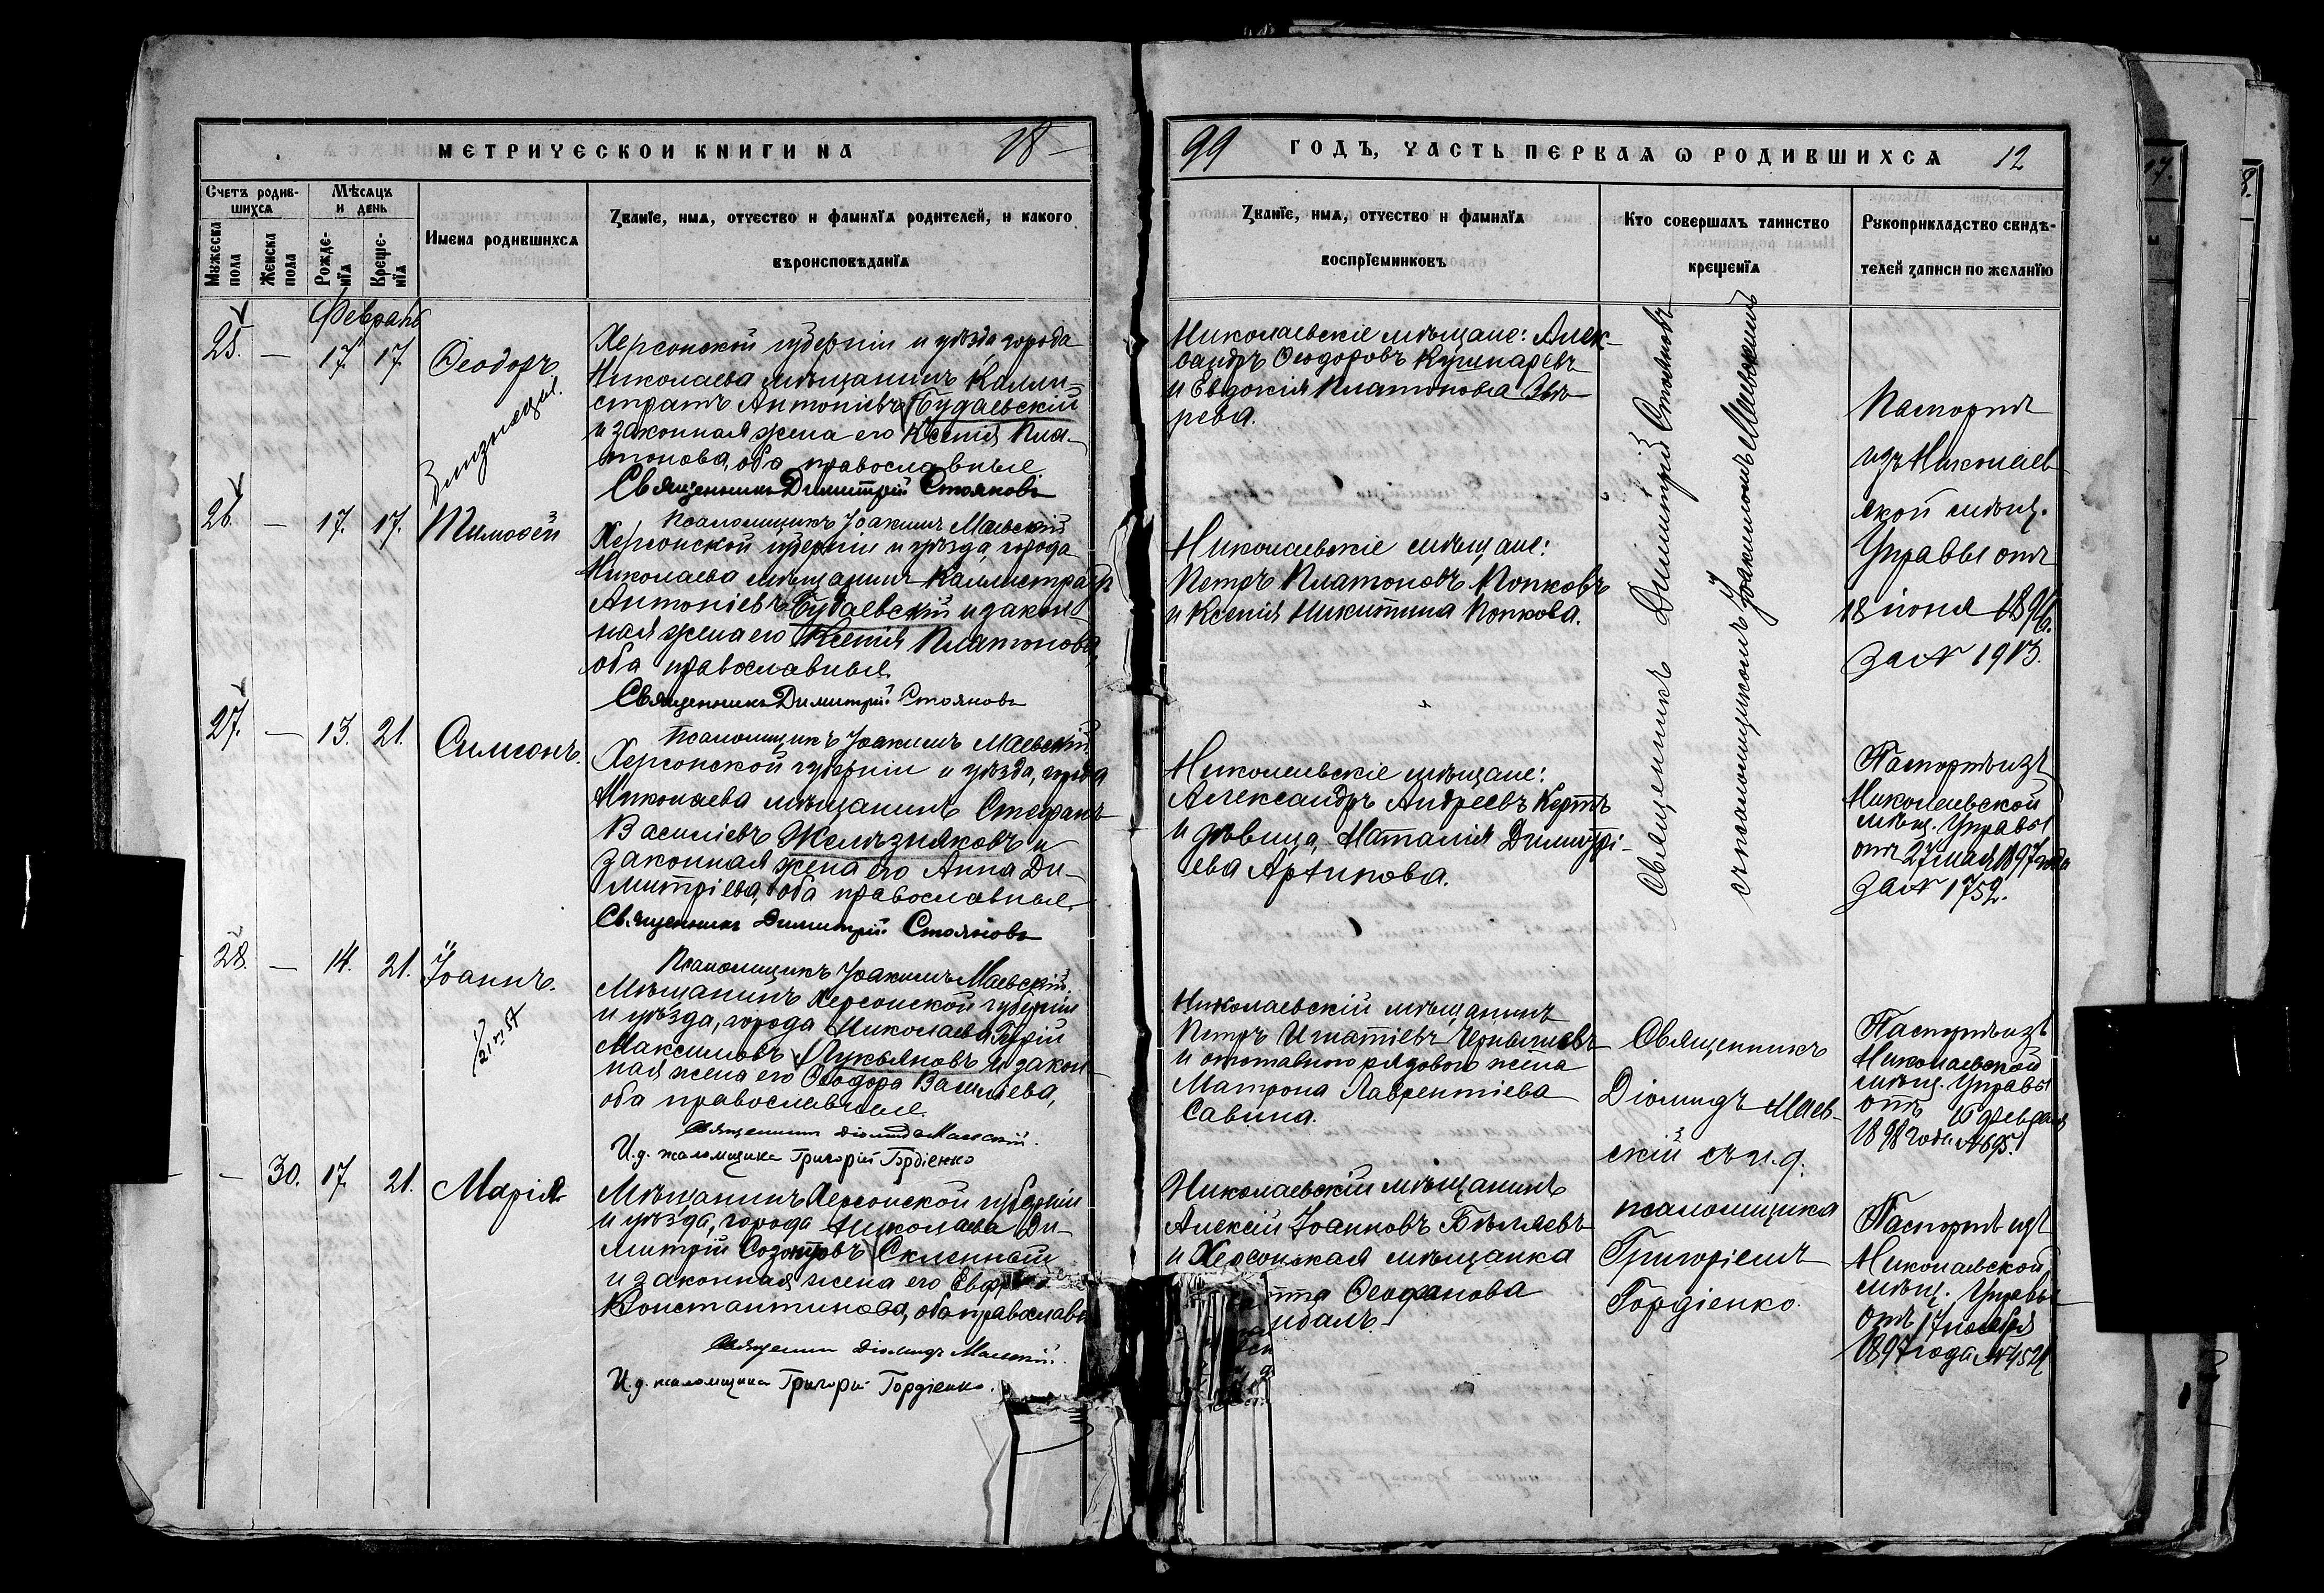 МЕТРИЧЕСКОЙ КНИГИ НА 18
Счетъ родив-
шихся
Мѣсяцъ
и день
Мужеска
пола
Женска
пола
Рожде-
нїя
Креще-
нїя
Имена родившихся
Званїе, имя, отчество и фамилїя родителей, и какого
вѣроисповѣданїя
Февраль
25. — 17. 17. Ѳеодоръ
близнецы.
Херсонской губерніи и уѣзда города
Николаева мѣщанинъ Калли-
стратъ Антоніевъ Будаевскій
и законная жена его Ксенія Пла-
тонова, оба православные
Священникъ Димитрій Стояновъ
Псаломщикъ Іоакимъ Маевскій
26. — 17. 17. Тимоѳей
Херсонской губерніи и уѣзда, города
Николаева мѣщанинъ Каллистратъ
Антоніевъ Будаевскій и закон-
ная жена его Ксенія Платонова,
оба православные.
Священникъ Димитрій Стояновъ
Псаломщикъ Іоакимъ Маевскій.
27. — 13. 21. Симеонъ.
Херсонской губерніи и уѣзда, города
Николаева мѣщанинъ Стефанъ
Василіевъ Желѣзняковъ и
законная жена его Анна Ди-
митріева, оба православные.
Священникъ Димитрій Стояновъ
Псаломщикъ Іоакимъ Маевскій.
28. — 14. 21. Іоаннъ.
Мѣщанинъ Херсонской губерніи
и уѣзда, города Николаева Гурій
Максимовъ Лукьяновъ и закон-
ная жена его Ѳеодора Василіева,
оба православные.
Священникъ Діомидъ Маевскій.
И.д. псаломщика Григорій Гордіенко
— 30. 17. 21. Марія
Мѣщанинъ Херсонской губерніи
и уѣзда, города Николаева Ди-
митрій Созонтовъ Скленный
и законная жена его
Константинова, оба православн
Священникъ Діомидъ Маевскій.
И.д. псаломщика Григорій Гордіенко.
99 ГОДЪ, ЧАСТЬ ПЕРВАЯ Ѡ РОДИВШИХСЯ 12
Званїе, имя, отчество и фамилїя
воспрїемниковъ
Кто совершалъ таинство
крещенїя
Рукоприкладство свидѣ-
телей записи по желанїю
Николаевскіе мѣщане: Алек-
сандръ Ѳеодоровъ Кушнаревъ
и Евдокія Платонова Звѣ-
рева.
Николаевскіе мѣщане:
Петръ Платоновъ Попковъ
и Ксенія Никитина Попкова.
Николаевскіе мѣщане:
Александръ Андреевъ Кертъ
и дѣвица Наталія Димитрі-
ева Артикова.
Николаевскій мѣщанинъ
Петръ Игнатіевъ
и отставного рядового жена
Матрона Лаврентіева
Савина.
Николаевскій мѣщанинъ
Алексій Іоанновъ Бѣляевъ
и Херсонская мѣщанка
Ѳеофанова
Священникъ Димитрій Стояновъ
съ псаломщикомъ Іоакимомъ Маевскимъ
Священникъ
Діомидъ Маев-
скій съ и.д.
псаломщика
Григоріемъ
Гордіенко.
Паспортъ
изъ Николаев-
ской мѣщ.
Управы отъ
18 іюня 1896г.
за № 1913.
Паспортъ изъ
Николаевской
мѣщ. Управы
отъ 27 мая 1897 года
за № 1752.
Паспортъ изъ
Николаевской
мѣщ. Управы
отъ 16 февраля
1898 года № 695.
Паспортъ изъ
Николаевской
мѣщ. Управы
отъ 17 ноября
1897 года № 4521